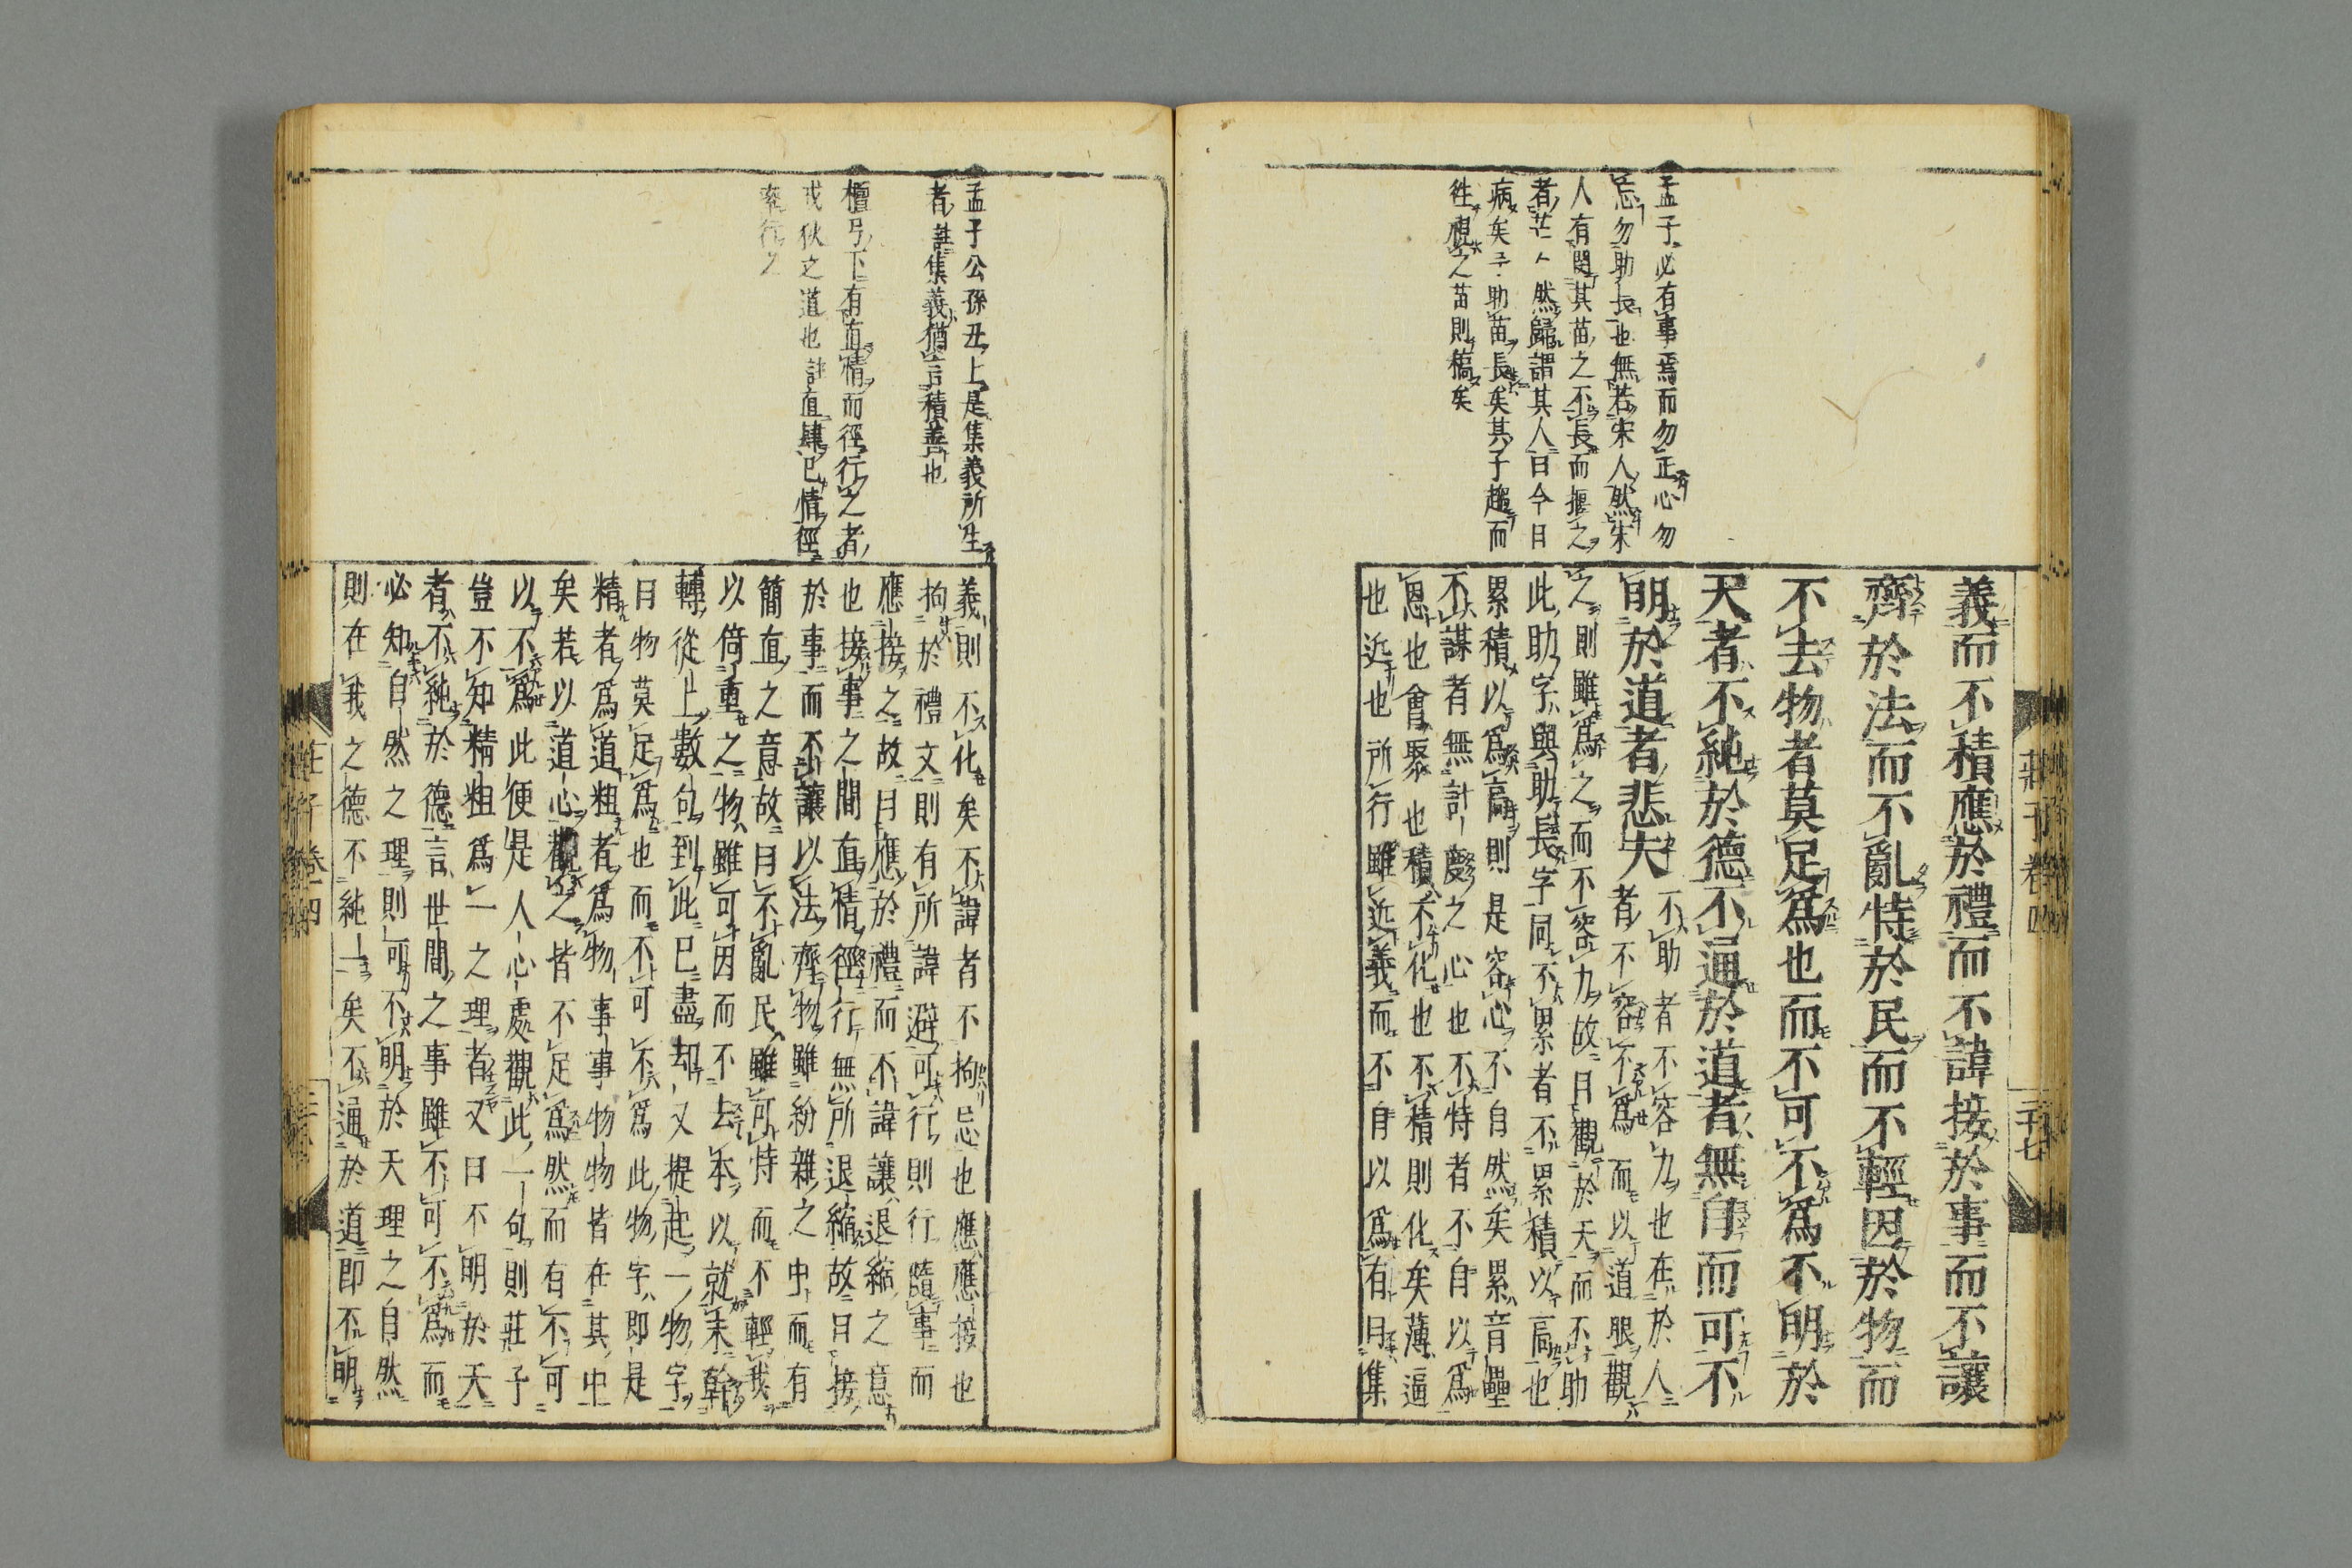 莊子卷四
二十七
孟子必有事焉而勿正心勿
忘勿助長也無若宋人然宋
人有閔其苗之不長而揠之
者芒〻然歸謂其人曰今日
病矣予助苗長矣其子趨而
徃視之苗則稿矣
義而不積應於禮而不諱接於事而不讓
齊於法而不亂恃於民而不輕因於物而
不去物者莫足爲也而不可不爲不明於
天者不純於德不通於道者無自而可不
明於道者悲夫
不助者不容力也在於人
者不容不爲而以道眼觀
之則雖爲之而不容力故曰觀於天而不助
此助字與助長字同不累者不累積以高也
累積以爲高則是容心不自然矣累音壘
不謀者無計慮之心也不恃者不自以爲
恩也會聚也積不化也不積則化矣薄逼
也近也所行雖近義而不自以爲有曰集
孟子公孫丑上是集義所生
者註集義猶言積善也
檀弓下有直情而徑行之者
戎狄之道也註直肆己情徑
率行之
義則不化矣不諱者不拘忌也應應接也
拘於禮文則有所諱避可行則行隨事而
應接之故曰應於禮而不諱讓退縮之意
也接事之間直情徑行無所退縮故曰接
於事而不讓以法齊物雖紛雜之中而有
簡直之意故曰不亂民雖可恃而不輕我
以倚重之物雖可因而不去本以就末
轉從上數句到此已盡却又提起一物字
曰物莫足爲也而不可不爲此物字即是
精者爲道粗者爲物事事物物皆在其中
矣若以道心觀之皆不足爲然而有不可
以不爲此便是人心處觀此一句則莊子
豈不知精粗爲一之理者又曰不明於天
者不純於德言世間之事雖不可不爲而
必知自然之理則可不明於天理之自然
則在我之德不純一矣不通於道即不明
莊子卷四